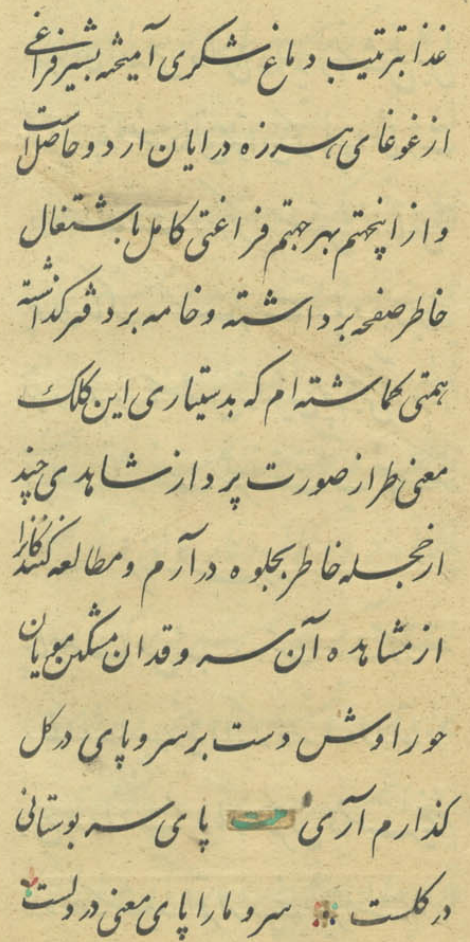 غذا بترتیب دماغ شکری آمیخته بشیر فراغی
از غوغای هرزه درایان ارد و حاصل است
و از اینجهتم بهر جهتم فراغتی کامل باشتغال
خاطر صفحه برداشته و خامه بر دفتر گذاشته
همتی گماشته‌ام که بدستیاری این کلک
معنی طراز صورت پرداز شاهدی چند
از حجله خاطر بجلوه درآرم و مطالعه کنندگانرا
از مشاهده آن سروقدان مشکین مویان
حوراوش دست بر سر و پای در گل
گذارم آری بیت پای سرو بوستانی
در گلست سرو ما را پای معنی در دلست